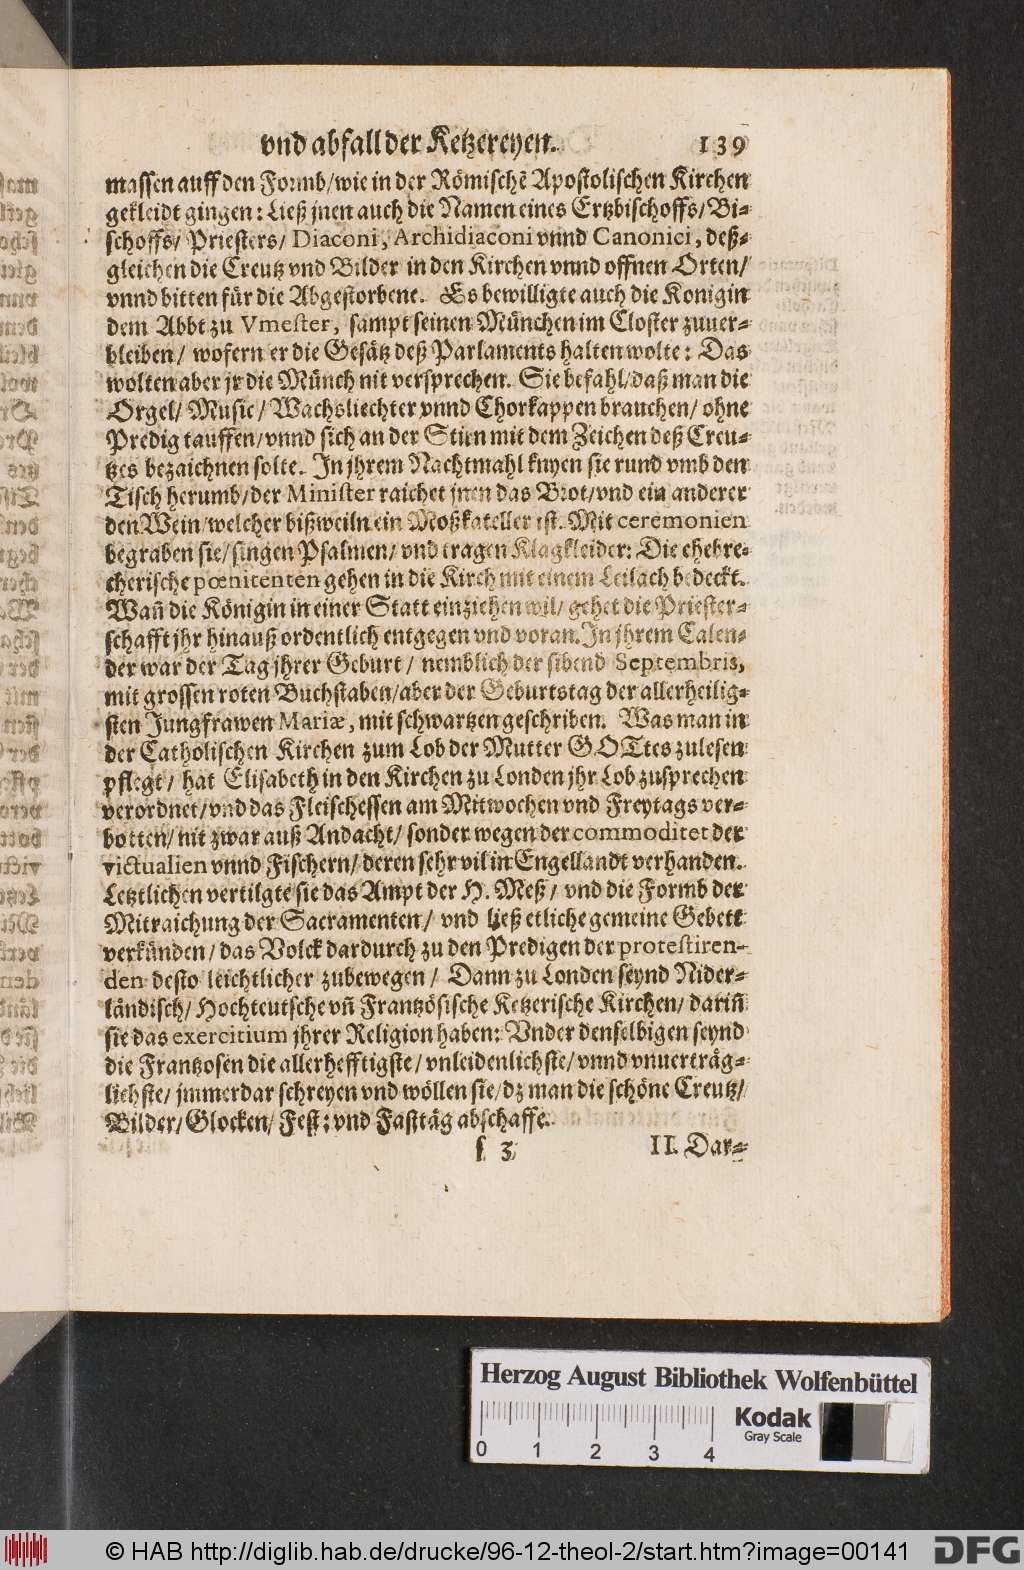 vnd abfall der Ketzereyen. 139
massen auff den Formb/ wie in der Römischē Apostolischen Kirchen
gekleidt gingen: Ließ jnen auch die Namen eines Ertzbischoffs/ Bi-
schoffs/ Priesters/ Diaconi, Archidiaconi vnnd Canonici, deß-
gleichen die Creutz vnd Bilder in den Kirchen vnnd offnen Orten/
vnnd bitten für die Abgestorbene. Es bewilligte auch die Konigin
dem Abbt zu Vmester, sampt seinen München im Closter zuuer-
bleiben/ wofern er die Gesätz deß Parlaments halten wolte: Das
wolten aber jr die Münch nit versprechen. Sie befahl/ daß man die
Orgel/ Music/ Wachsliechter vnnd Chorkappen brauchen/ ohne
Predig tauffen/ vnnd sich an der Stirn mit dem Zeichen deß Creu-
tzes bezaichnen solte. In jhrem Nachtmahl knyen sie rund vmb den
Tisch herumb/ der Minister raichet jnen das Brot/ vnd ein anderer
den Wein/ welcher bißweiln ein Moßkateller ist. Mit ceremonien
begraben sie/ singen Psalmen/ vnd tragen Klagkleider: Die ehebre-
cherische pœnitenten gehen in die Kirch mit einem Leilach bedeckt.
Wañ die Königin in einer Statt einziehen wil/ gehet die Priester-
schafft jhr hinauß ordentlich entgegen vnd voran. In jhrem Calen-
der war der Tag jhrer Geburt/ nemblich der sibend Septembris,
mit grossen roten Buchstaben/ aber der Geburtstag der allerheilig-
sten Jungfrawen Mariæ, mit schwartzen geschriben. Was man in
der Catholischen Kirchen zum Lob der Mutter GOTtes zulesen
pflegt/ hat Elisabeth in den Kirchen zu Londen jhr Lob zusprechen
verordnet/ vnd das Fleischessen am Mitwochen vnd Freytags ver-
botten/ nit zwar auß Andacht/ sonder wegen der commoditet der
victualien vnnd Fischern/ deren sehr vil in Engellandt verhanden.
Letztlichen vertilgte sie das Ampt der H. Meß/ vnd die Formb der
Mitraichung der Sacramenten/ vnd ließ etliche gemeine Gebett
verkünden/ das Volck dardurch zu den Predigen der protestiren-
den desto leichtlicher zubewegen/ Dann zu Londen seynd Nider-
ländisch/ Hochteutsche vñ Frantzösische Ketzerische Kirchen/ dariñ
sie das exercitium jhrer Religion haben: Vnder denselbigen seynd
die Frantzosen die allerhefftigste/ vnleidenlichste/ vnnd vnuerträg-
lichste/ jmmerdar schreyen vnd wöllen sie/ dz man die schöne Creutz/
Bilder/ Glocken/ Fest: vnd Fasttäg abschaffe.
ſ 3 II. Dar-
Herzog August Bibliothek Wolfenbüttel
Kodak
Gray Scale
0 1 2 3 4
© HAB http://diglib.hab.de/drucke/96-12-theol-2/start.htm?image=00141
DFG